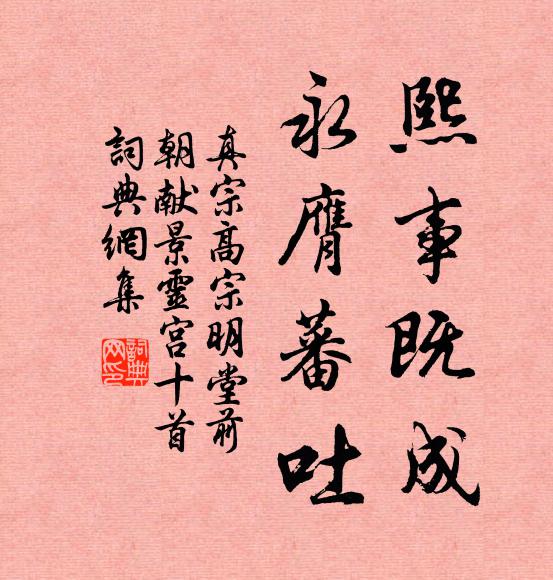 熙事既成
永膺蕃吐
真宗高宗明堂前
朝献景靈宫十首
詞典網集
詞典
网印